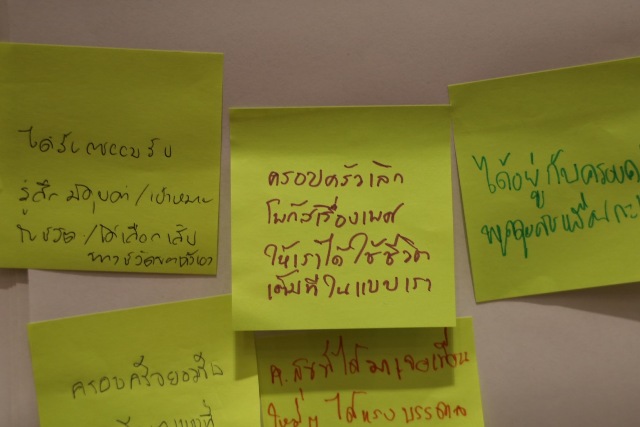 ได้รับการยอมรับ
รู้สึกมีคุณค่า/เป้าหมาย
ในชีวิต/ได้เลือกเส้น
ทางชีวิตของตัวเอง
ครอบครัวเลิก
โฟกัสเรื่องเพศ
ให้เราได้ใช้ชีวิต
เต็มที่ในแบบเรา
ได้อยู่กับครอบครัว
ครอบครัวยอมรับ
ค.สุขที่ได้มาเจอเพื่อน
ใหม่ๆ ได้แรงบรรดาล